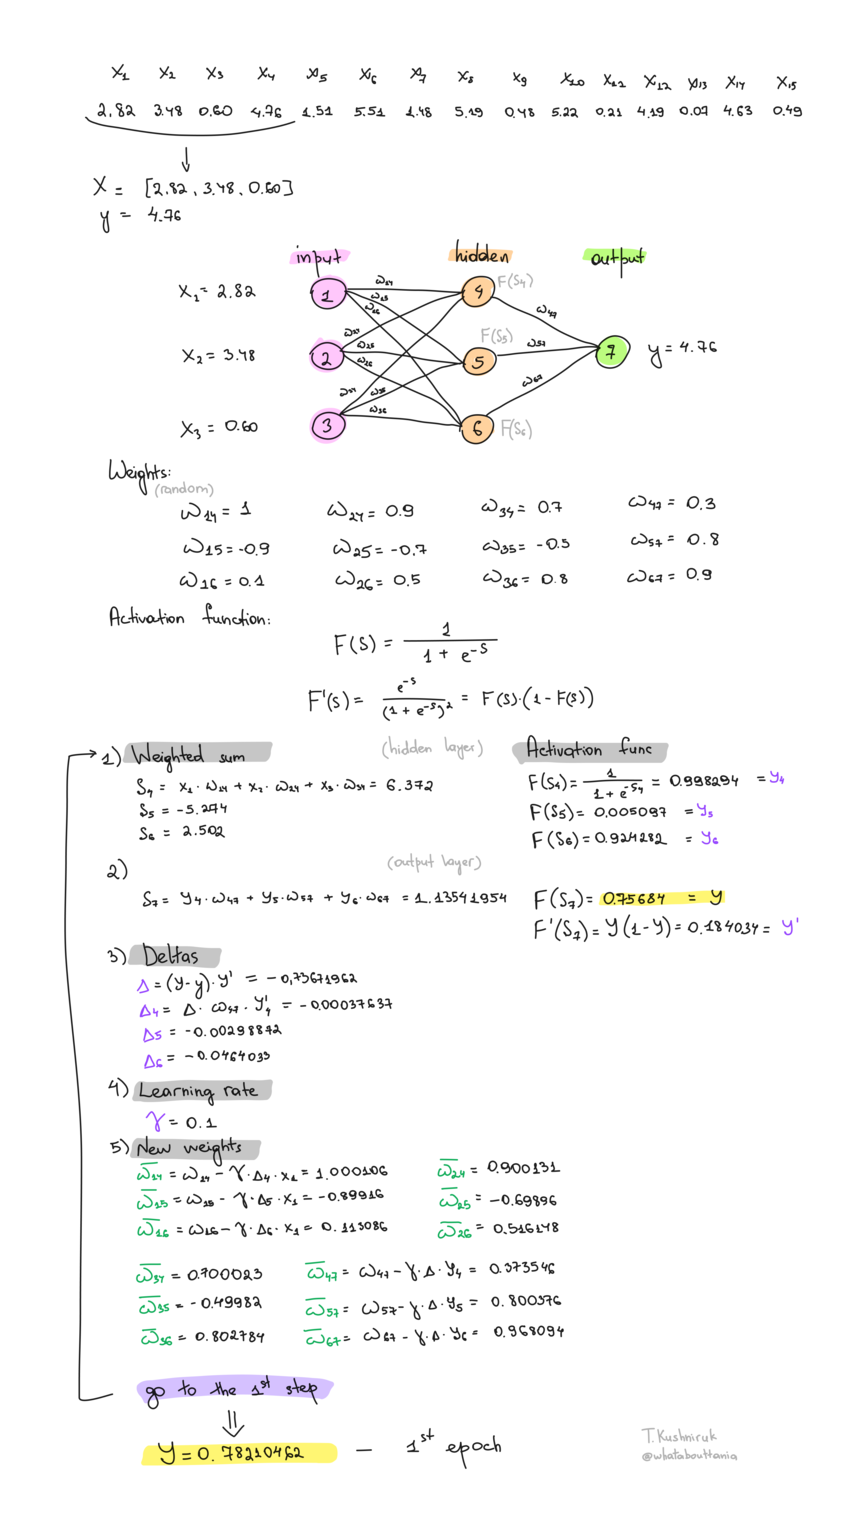 X₁ X₂ X₃ X₄ X₅ X₆ X₇ X₈ X₉ X₁₀ X₁₁ X₁₂ X₁₃ X₁₄ X₁₅
2.82 3.48 0.60 4.76 1.51 5.51 1.48 5.19 0.48 5.22 0.21 4.19 0.07 4.63 0.49
X = [2.82, 3.48, 0.60]
y = 4.76
input hidden output
X₁ = 2.82 1 ω₁₄ ω₁₅ ω₁₆ 4 F(S₄) ω₄₇
X₂ = 3.48 2 ω₂₄ ω₂₅ ω₂₆ 5 F(S₅) ω₅₇ 7 y = 4.76
X₃ = 0.60 3 ω₃₄ ω₃₅ ω₃₆ 6 F(S₆) ω₆₇
Weights:
(random)
ω₁₄ = 1 ω₂₄ = 0.9 ω₃₄ = 0.7 ω₄₇ = 0.3
ω₁₅ = -0.9 ω₂₅ = -0.7 ω₃₅ = -0.5 ω₅₇ = 0.8
ω₁₆ = 0.1 ω₂₆ = 0.5 ω₃₆ = 0.8 ω₆₇ = 0.9
Activation function:
F(S) = 1 / (1 + e⁻ˢ)
F'(S) = e⁻ˢ / (1 + e⁻ˢ)² = F(S)·(1 - F(S))
1) Weighted sum (hidden layer) Activation func
S₄ = x₁·ω₁₄ + x₂·ω₂₄ + x₃·ω₃₄ = 6.372 F(S₄) = 1 / (1 + e^-S₄) = 0.998294 = y₄
S₅ = -5.274 F(S₅) = 0.005097 = y₅
S₆ = 2.502 F(S₆) = 0.924282 = y₆
2) (output layer)
S₇ = y₄·ω₄₇ + y₅·ω₅₇ + y₆·ω₆₇ = 1.13541954 F(S₇) = 0.75684 = Y
F'(S₇) = Y(1-Y) = 0.184034 = y'
3) Deltas
Δ = (Y-y)·y' = -0,73671962
Δ₄ = Δ·ω₄₇·y'₄ = -0.00037637
Δ₅ = -0.00298872
Δ₆ = -0.0464033
4) Learning rate
γ = 0.1
5) New weights
ω̅₁₄ = ω₁₄ - γ·Δ₄·x₁ = 1.000106 ω̅₂₄ = 0.900131
ω̅₁₅ = ω₁₅ - γ·Δ₅·x₁ = -0.89916 ω̅₂₅ = -0.69896
ω̅₁₆ = ω₁₆ - γ·Δ₆·x₁ = 0.113086 ω̅₂₆ = 0.516148
ω̅₃₄ = 0.700023 ω̅₄₇ = ω₄₇ - γ·Δ·y₄ = 0.373546
ω̅₃₅ = -0.49982 ω̅₅₇ = ω₅₇ - γ·Δ·y₅ = 0.800376
ω̅₃₆ = 0.802784 ω̅₆₇ = ω₆₇ - γ·Δ·y₆ = 0.968094
go to the 1st step
Y = 0.78210462 - 1st epoch
T.Kushniruk
@whatabouttania